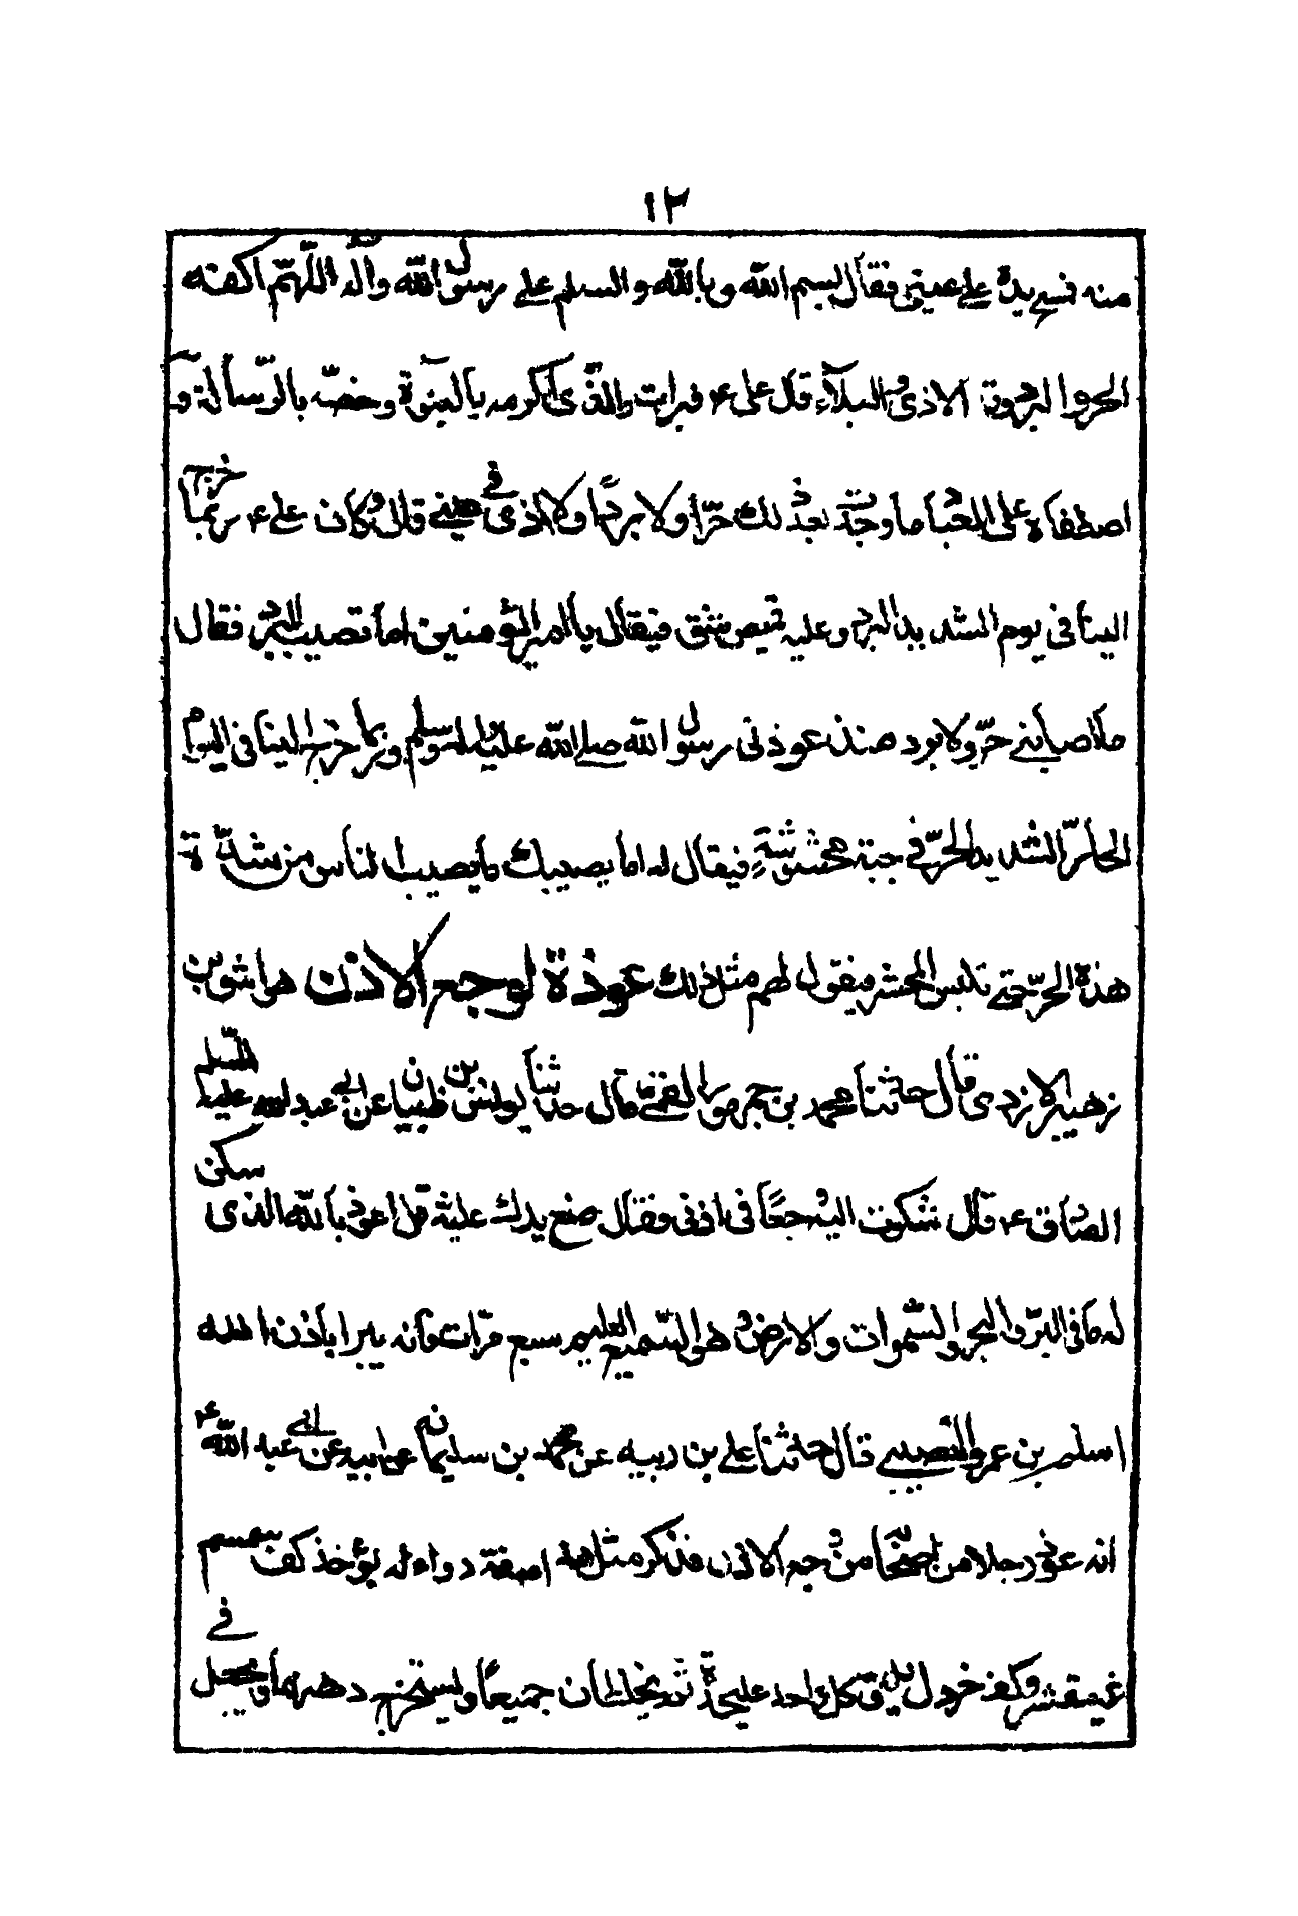 ١٢
منه فمسح يده على عينى فقال بسم الله وبالله والسلم على رسول الله واله اللهم اكفنه
الحر والبرد وقه الاذى والبلآء قال على ع فبرات والذى اكرمه بالنبوة وخصّه بالرّسالة و
اصطفاه على العباد ما وجدت بعد ذلك حرّا ولا بردًا ولا اذى فى عينى قال وكان على ع ربما خرج
الينا فى يوم الشديد البرد وعليه قميص شق فيقال يا امير المؤمنين اما تصيب البرد فقال
ما اصابنى حرّ ولا برد منذ عوذنى رسول الله صلى الله عليه واله وسلم وربما خرج الينا فى اليوم
الحارّ الشديد الحرّ فى جبة محشوّة فيقال له اما يصيبك ما يصيب الناس من شدّة
هذه الحرّ حتى تلبس المحشو فيقول لهم مثل ذلك عوذة لوجع الاذن هراش بن
زهير الازدى قال حدثنا محمد بن جمهور القمّى قال حدثنا يونس بن ظبيان عن ابى عبدالله عليه السّلم
الصادق ع قال شكوت اليه وجعًا فى اذنى فقال ضع يدك عليه وقل اعوذ بالله الذى
له ما فى البرّ والبحر والسّموات والارض وهو السّميع العليم سبع مرّات فانه يبرا باذن الله
اسلم بن عمرو النصيبى قال حدثنا على بن ربيه عن محمد بن سليمان عن ابيه عن ابى عبد الله ع
انه عوذ رجلا من اصحابنا من وجع الاذن فذكر مثل هذه صفة دواء له يؤخذ كف سمسم
غير مقشر وكف خردل يدق كل واحد على حدّة ثم يخلطان جميعًا ويستخرج دهنهما ويجعل فى